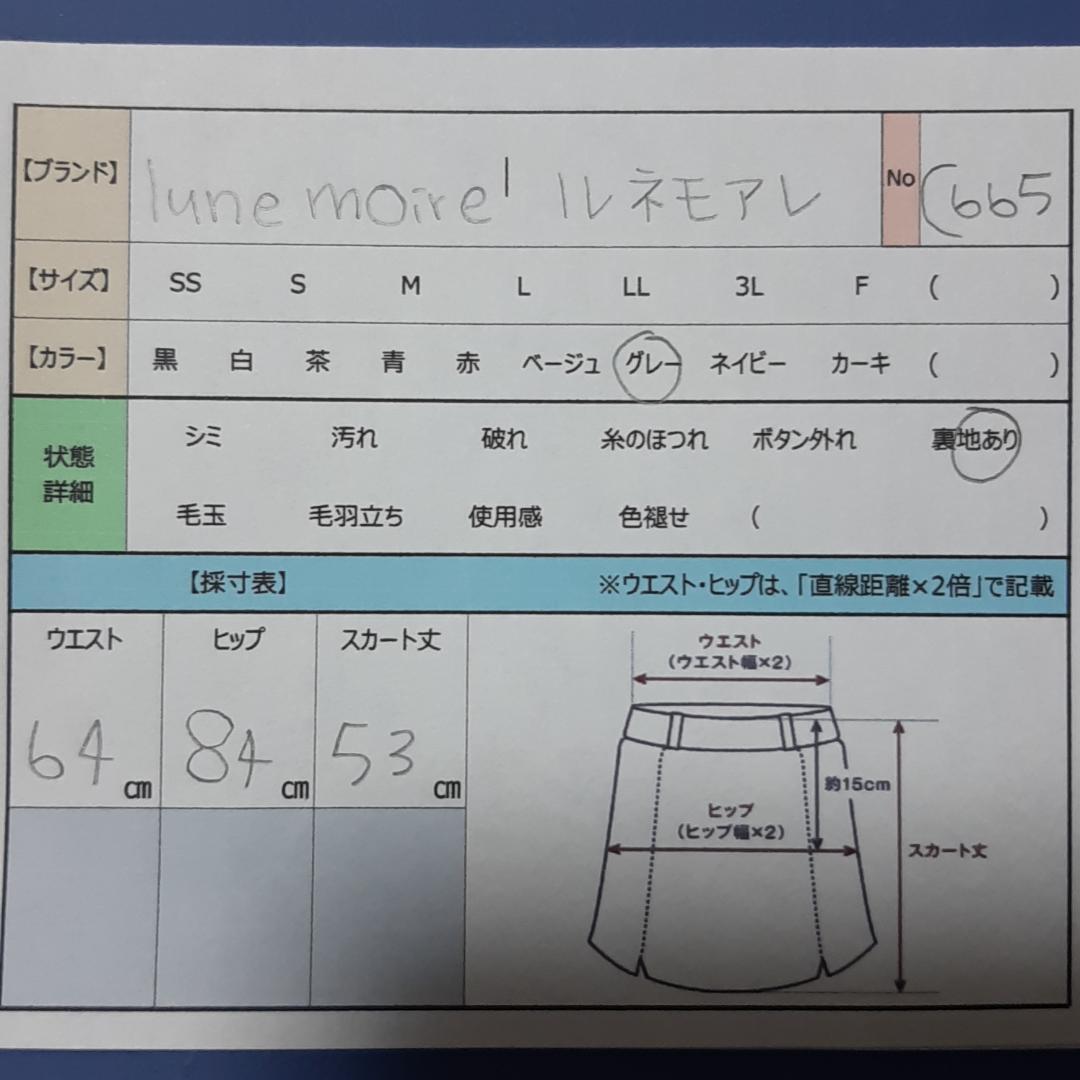 【ブランド】 lune moire' ルネモアレ No C665
【サイズ】 SS S M L LL 3L F ( )
【カラー】 黒 白 茶 青 赤 ベージュ グレー ネイビー カーキ ( )
状態詳細 シミ 汚れ 破れ 糸のほつれ ボタン外れ 裏地あり
毛玉 毛羽立ち 使用感 色褪せ ( )
【採寸表】 ※ウエスト・ヒップは、「直線距離×2倍」で記載
ウエスト ヒップ スカート丈
64cm 84cm 53cm
ウエスト
(ウエスト幅×2)
約15cm
ヒップ
(ヒップ幅×2)
スカート丈